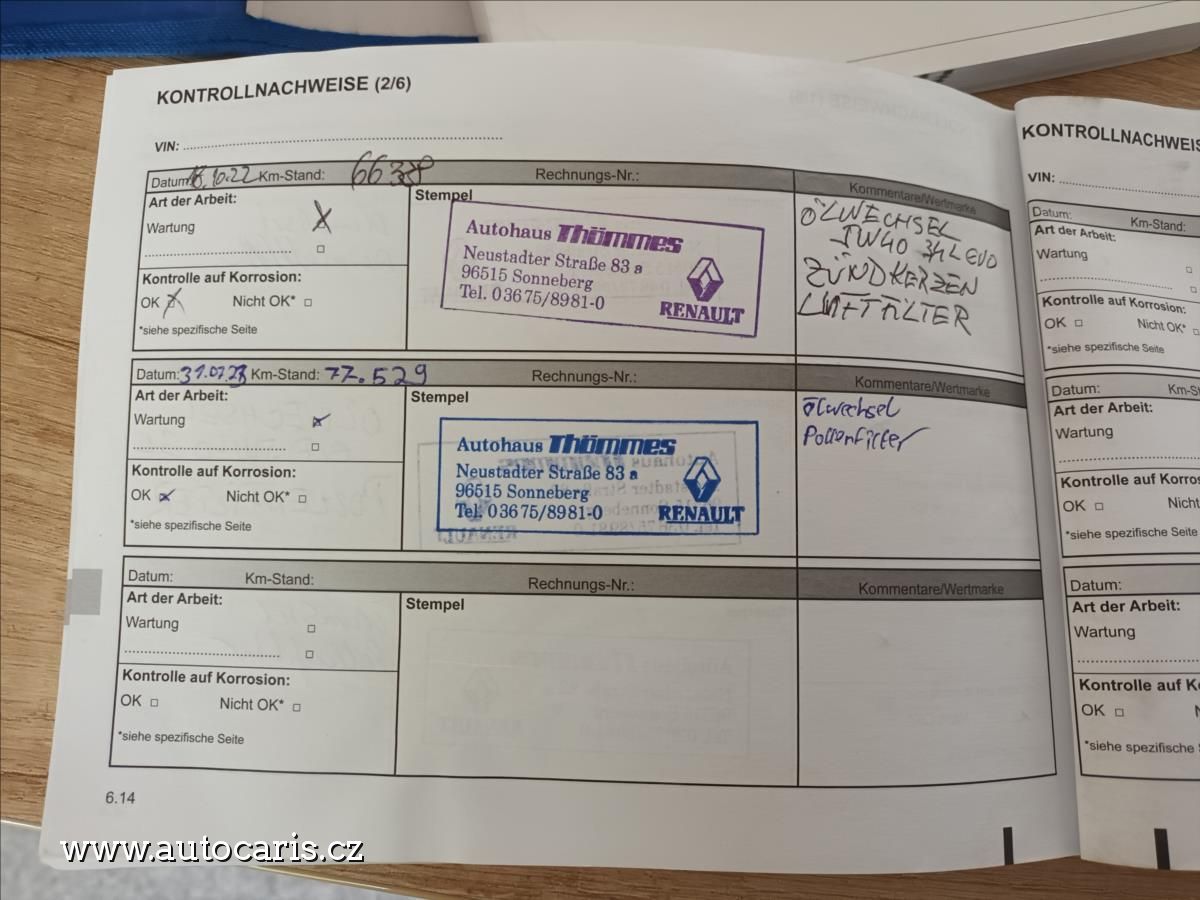 KONTROLLNACHWEISE (2/6)
VIN:
Datum: 18.10.22 Km-Stand: Rechnungs-Nr.: Kommentare/Wertmarke
Art der Arbeit:
Wartung
Kontrolle auf Korrosion:
OK Nicht OK*
*siehe spezifische Seite
Stempel
Autohaus Thömmes
Neustadter Straße 83 a
96515 Sonneberg
Tel. 03675/8981-0
RENAULT
ÖLWECHSEL
5W40
ZÜNDKERZEN
LUFTFILTER
Datum: 31.07.23 Km-Stand: 77.529 Rechnungs-Nr.: Kommentare/Wertmarke
Art der Arbeit:
Wartung
Kontrolle auf Korrosion:
OK Nicht OK*
*siehe spezifische Seite
Stempel
Autohaus Thömmes
Neustadter Straße 83 a
96515 Sonneberg
Tel. 03675/8981-0
RENAULT
Ölwechsel
Pollenfilter
Datum: Km-Stand: Rechnungs-Nr.: Kommentare/Wertmarke
Art der Arbeit:
Wartung
Kontrolle auf Korrosion:
OK Nicht OK*
*siehe spezifische Seite
Stempel
6.14
KONTROLLNACHWEIS
VIN:
Datum: Km-Stand:
Art der Arbeit:
Wartung
Kontrolle auf Korrosion:
OK Nicht OK*
*siehe spezifische Seite
Datum: Km-S
Art der Arbeit:
Wartung
Kontrolle auf Korrosion
OK Nicht
*siehe spezifische Seite
Datum:
Art der Arbeit:
Wartung
Kontrolle auf K
OK N
*siehe spezifische S
www.autocaris.cz